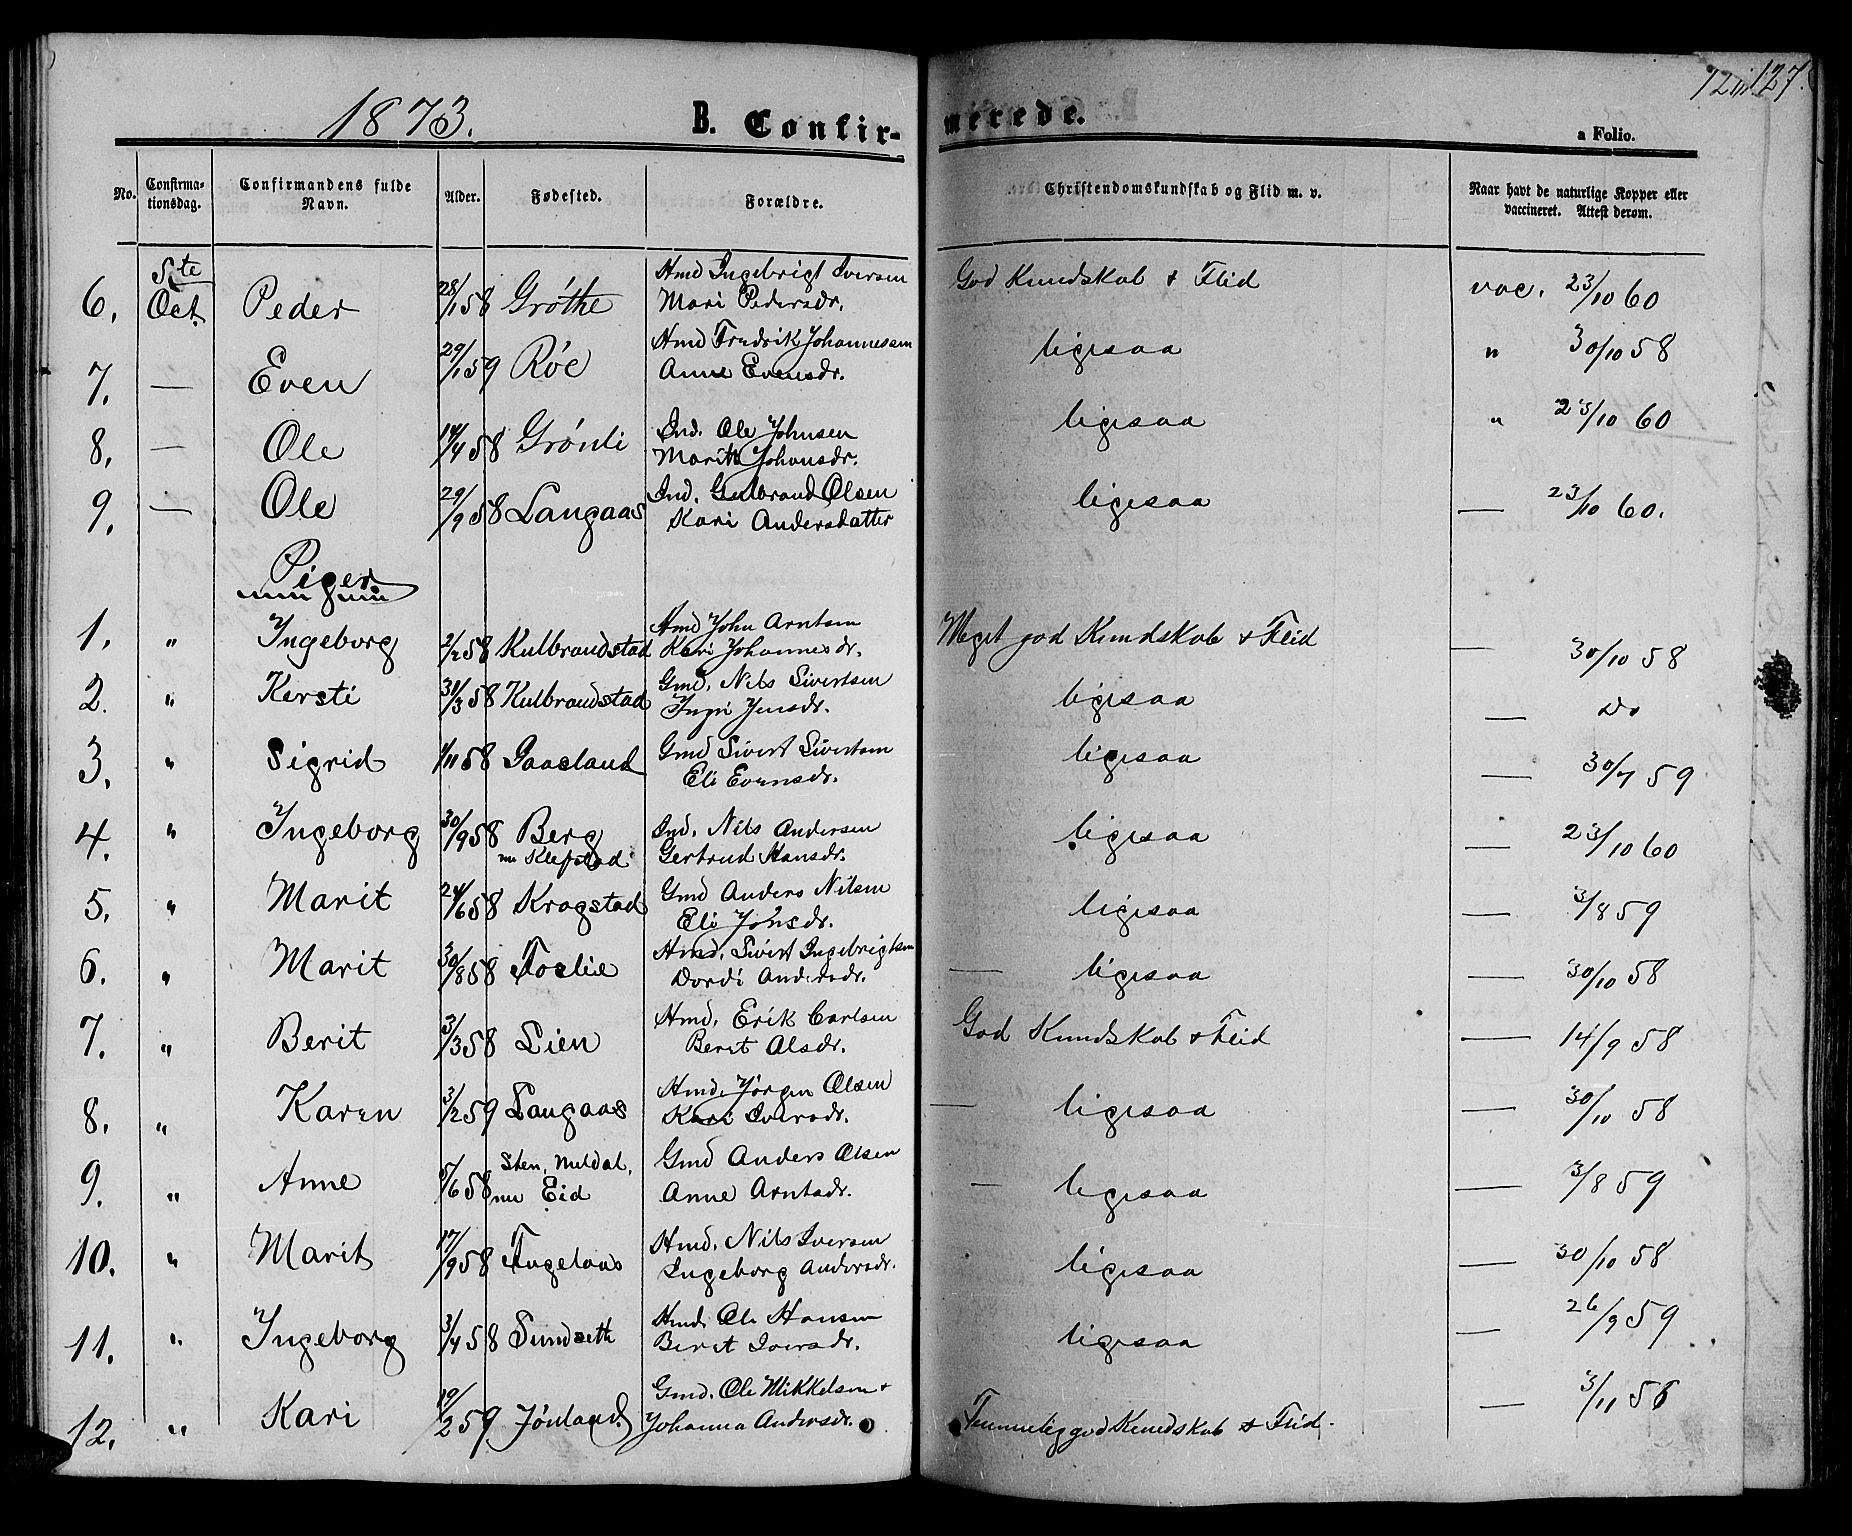 1873.
B. Confirmerede.
127.
a Folio.
No. Confirmationsdag. Confirmandens fulde Navn. Alder. Fødested. Forældre. Christendomskundskab og Flid m. v. Naar havt de naturlige Kopper eller vaccineret. Attest derom.
6. 5te Oct. Peder 28/1 58 Gröthe Hmd Ingebrigt Iversen Mari Pedersdr. God Kundskab & Flid vac. 23/10 60
7. — Even 29/1 59 Röe Hmd Fredrik Johannesen Anne Evensdr. ligesaa " 30/10 58
8. — Ole 14/4 58 Grönli Ind. Ole Johnsen Marit Johansdr. ligesaa " 23/10 60
9. — Ole 29/9 58 Langaas Ind. Gulbrand Olsen Kari Andersdatter ligesaa — 23/10 60.
Piger
1. " Ingeborg 2/2 58 Kulbrandstad Hmd John Arntsen Kari Johannesdr. Meget god Kundskab & Flid — 30/10 58
2. " Kersti 31/3 58 Kulbrandstad Gmd. Nils Sivertsen Ingri Jensdr. ligesaa — Do
3. " Sigrid 1/11 58 Gaaseland Gmd Sivert Sivertsen Eli Evensdr. ligesaa — 30/7 59
4. " Ingeborg 30/9 58 Berg nu Klefstad Ind. Nils Andersen Gertrud Hansdr. ligesaa — 23/10 60
5. " Marit 24/6 58 Kragstad Gmd Anders Nilsen Eli Jonsdr. ligesaa — 3/8 59
6. " Marit 30/8 58 Foslie Hmd. Sivert Ingebrigtsen Dordi Andersdr. — ligesaa — 30/10 58
7. " Berit 3/3 58 Lien Hmd. Erik Carlsen Berit Olsdr. God Kundskab & Flid — 14/9 58
8. " Karen 3/2 59 Langaas Hmd. Jörgen Olsen Kari Iversdr. — ligesaa — 30/10 58
9. " Anne 5/6 58 Sten, Meldal, nu Eid Gmd Anders Olsen Anne Arntsdr. — ligesaa — 3/8 59
10. " Marit 17/9 58 Fuglaas Hmd. Nils Iversen Ingeborg Andersdr. ligesaa — 30/10 58
11. " Ingeborg 3/4 58 Sundseth Hmd. Ole Hansen Berit Iversdr. ligesaa — 26/9 59
12. " Kari 19/2 59 Jönland Gmd. Ole Mikkelsen + Johanna Andersdr. Temmelig god Kundskab & Flid. — 3/11 56